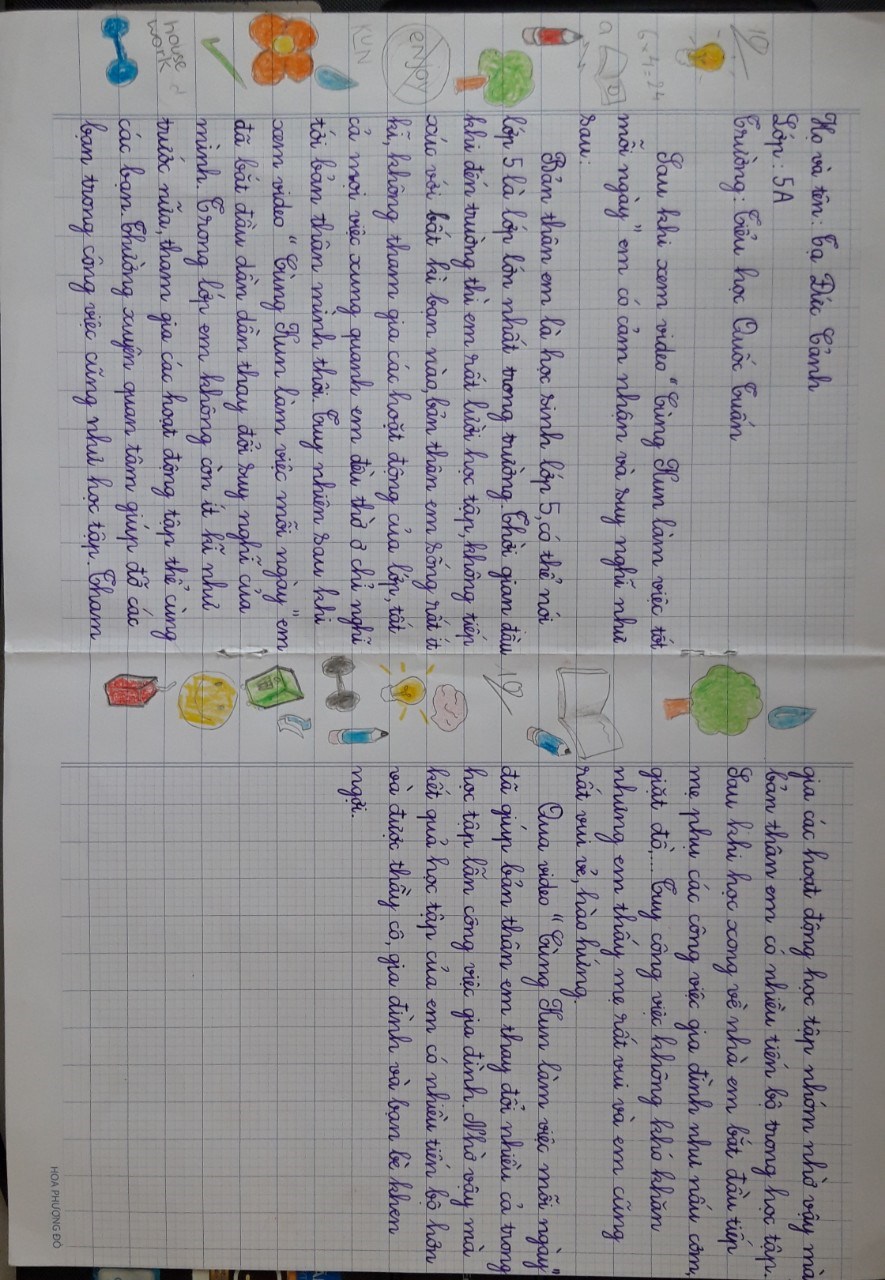 Họ và tên: Tạ Đức Cảnh
Lớp: 5A
Trường: Tiểu học Quốc Tuấn
Sau khi xem video "Cùng Kun làm việc tốt
mỗi ngày" em có cảm nhận và suy nghĩ như
sau:
Bản thân em là học sinh lớp 5, có thể nói
lớp 5 là lớp lớn nhất trong trường. Thời gian đầu
khi đến trường thì em rất lười học tập, không tiếp
xúc với bất kì bạn nào, bản thân em sống rất ít
kỉ, không tham gia các hoạt động của lớp, tất
cả mọi việc xung quanh em đều thờ ơ chỉ nghĩ
tới bản thân mình thôi. Tuy nhiên sau khi
xem video "Cùng Kun làm việc mỗi ngày" em
đã bắt đầu dần dần thay đổi suy nghĩ của
mình. Trong lớp em không còn ít kỉ như
trước nữa, tham gia các hoạt động tập thể cùng
các bạn. Thường xuyên quan tâm giúp đỡ các
bạn trong công việc cũng như học tập. Tham
10
6 x 4 = 24
a
enjoy
KUN
house
work
gia các hoạt động học tập nhóm nhờ vậy mà
bản thân em có nhiều tiến bộ trong học tập.
Sau khi học xong về nhà em bắt đầu tiếp
mẹ phụ các công việc gia đình như nấu cơm,
giặt đồ,... Tuy công việc không khó khăn
nhưng em thấy mẹ rất vui và em cũng
rất vui vẻ, hào hứng.
Qua video "Cùng Kun làm việc mỗi ngày"
đã giúp bản thân em thay đổi nhiều cả trong
học tập lẫn công việc gia đình. Nhờ vậy mà
kết quả học tập của em có nhiều tiến bộ hơn
và được thầy cô, gia đình và bạn bè khen
ngợi.
10
HOA PHƯỢNG ĐỎ